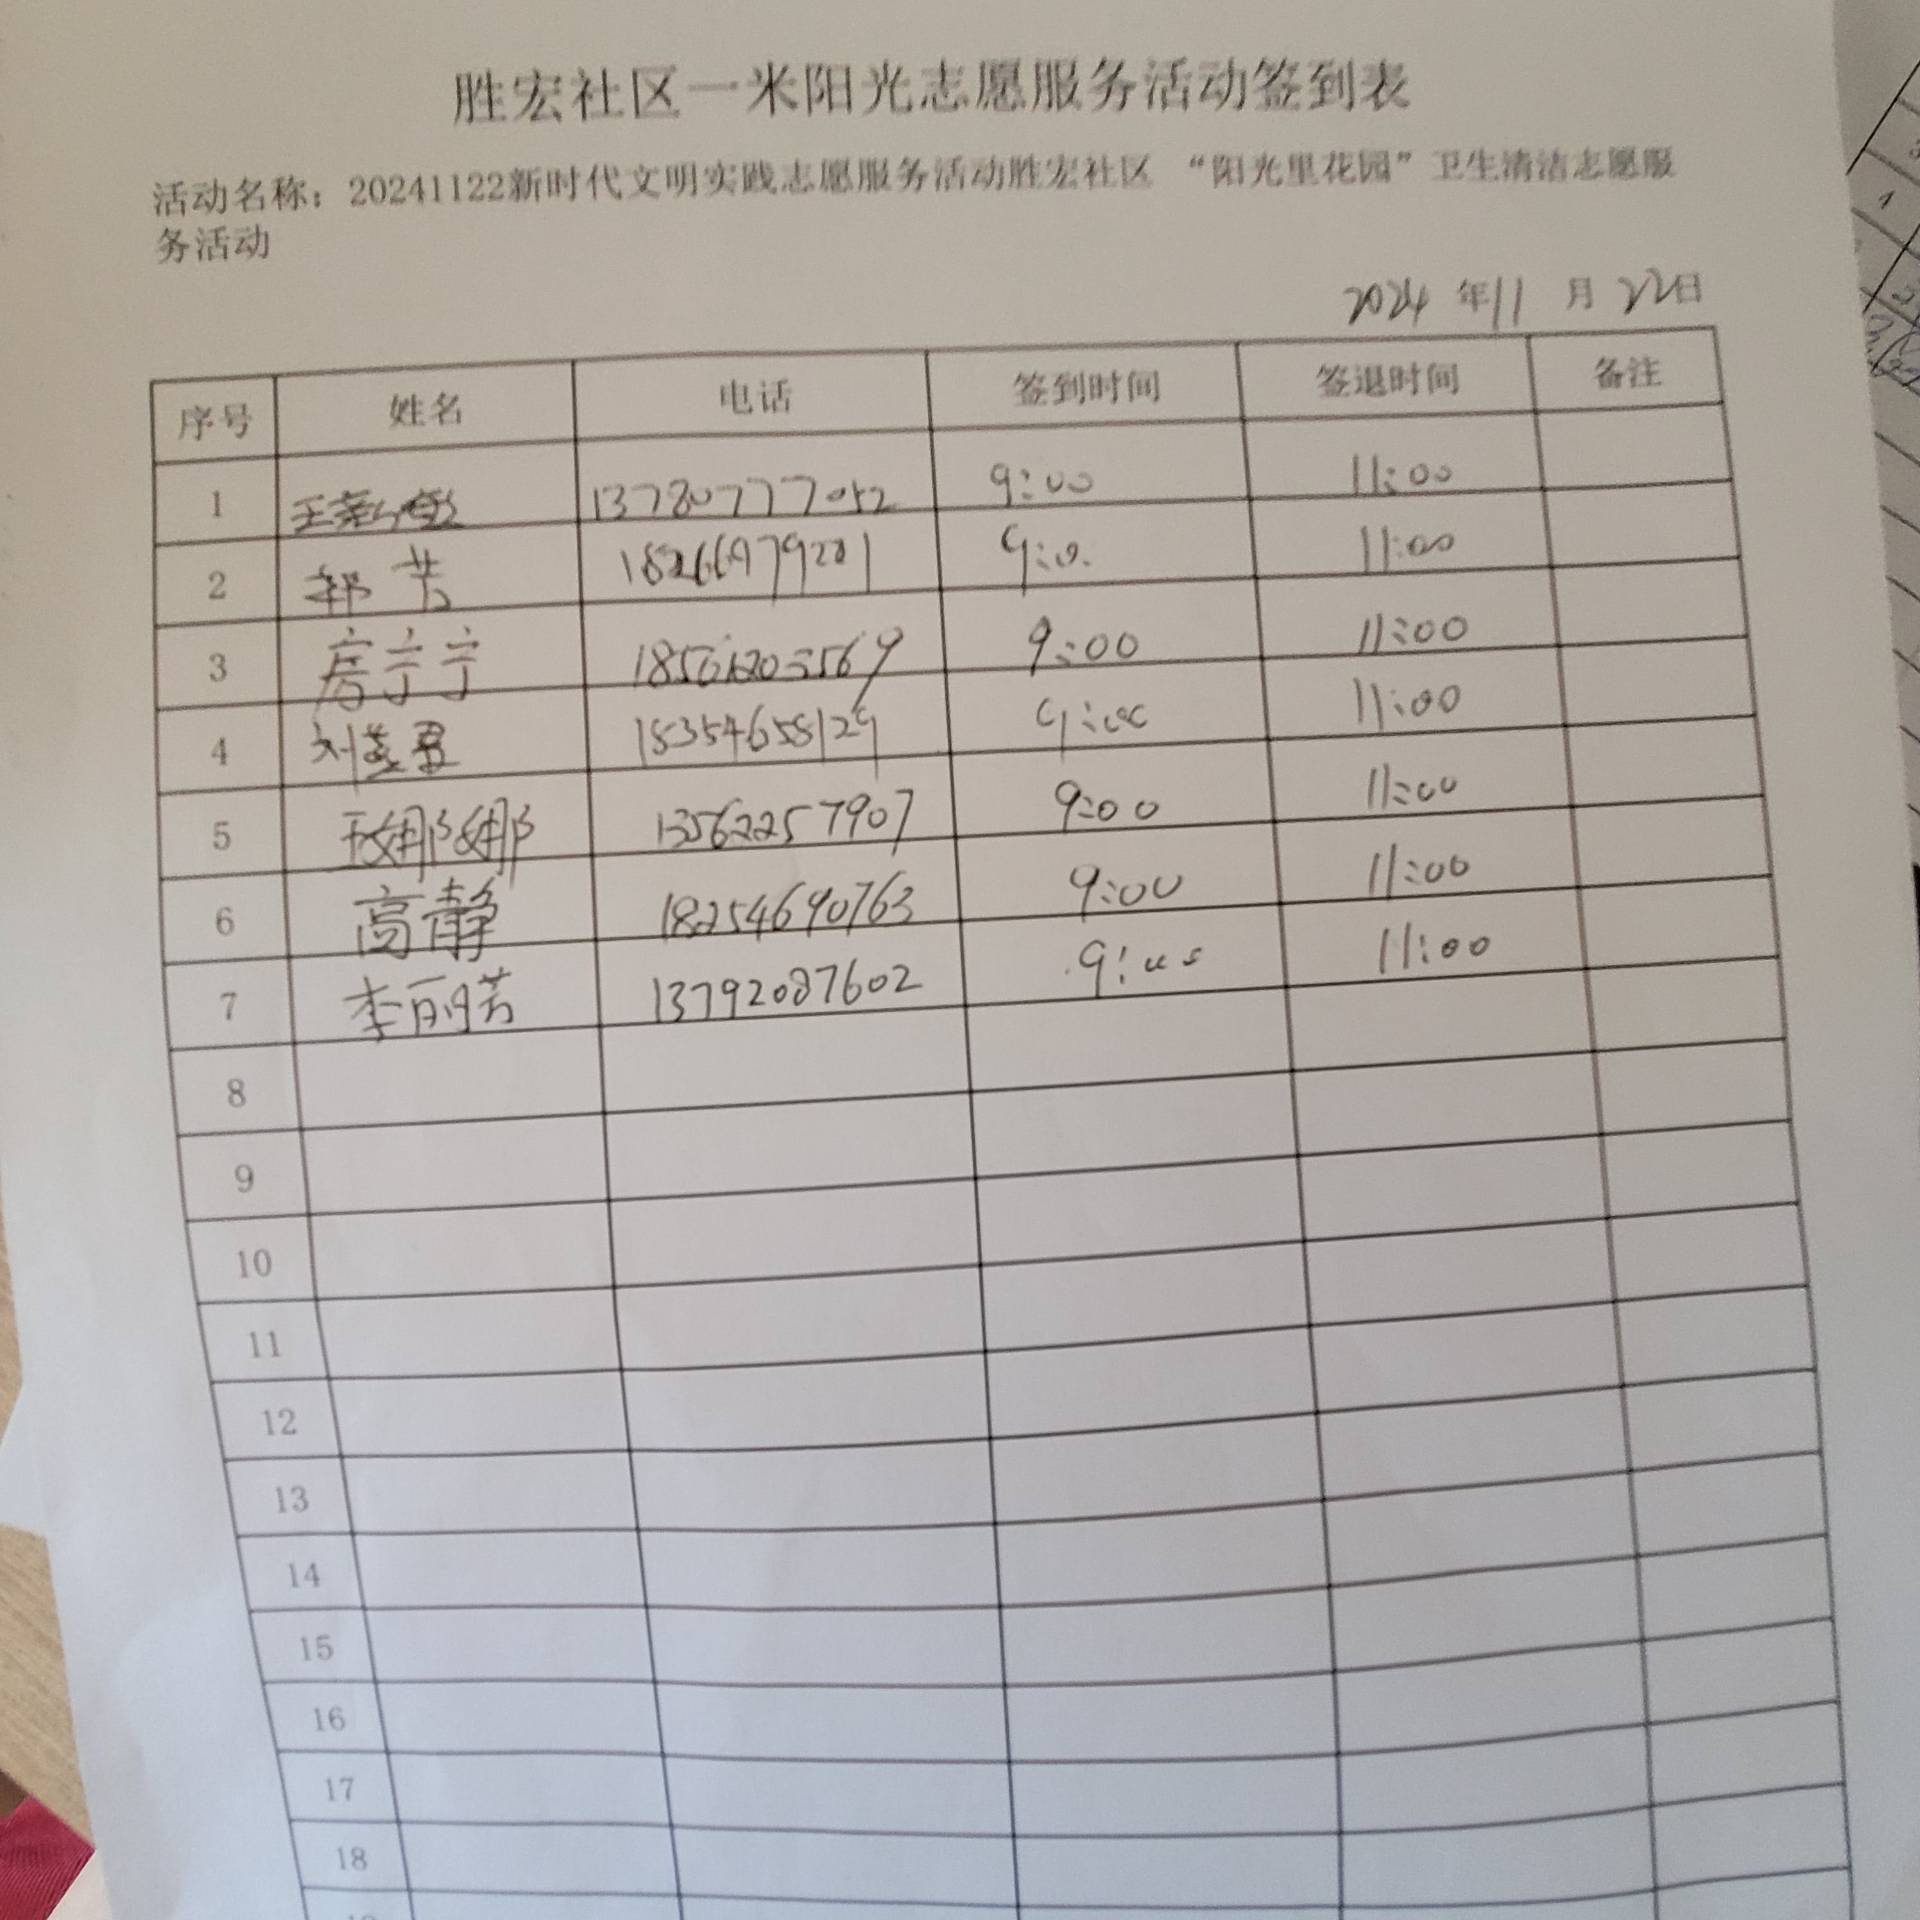 胜宏社区一米阳光志愿服务活动签到表
活动名称：20241122新时代文明实践志愿服务活动胜宏社区 “阳光里花园”卫生清洁志愿服
务活动
2024 年 11 月 22日
序号 姓名 电话 签到时间 签退时间 备注
1 13780777052 9:00 11:00
2 郭芳 18266979201 9:0. 11:00
3 房宁宁 18561203569 9:00 11:00
4 刘 18354658129 9:00 11:00
5 王娜娜 13562257907 9:00 11:00
6 高静 18254690763 9:00 11:00
7 李丽芳 13792087602 9:00 11:00
8
9
10
11
12
13
14
15
16
17
18